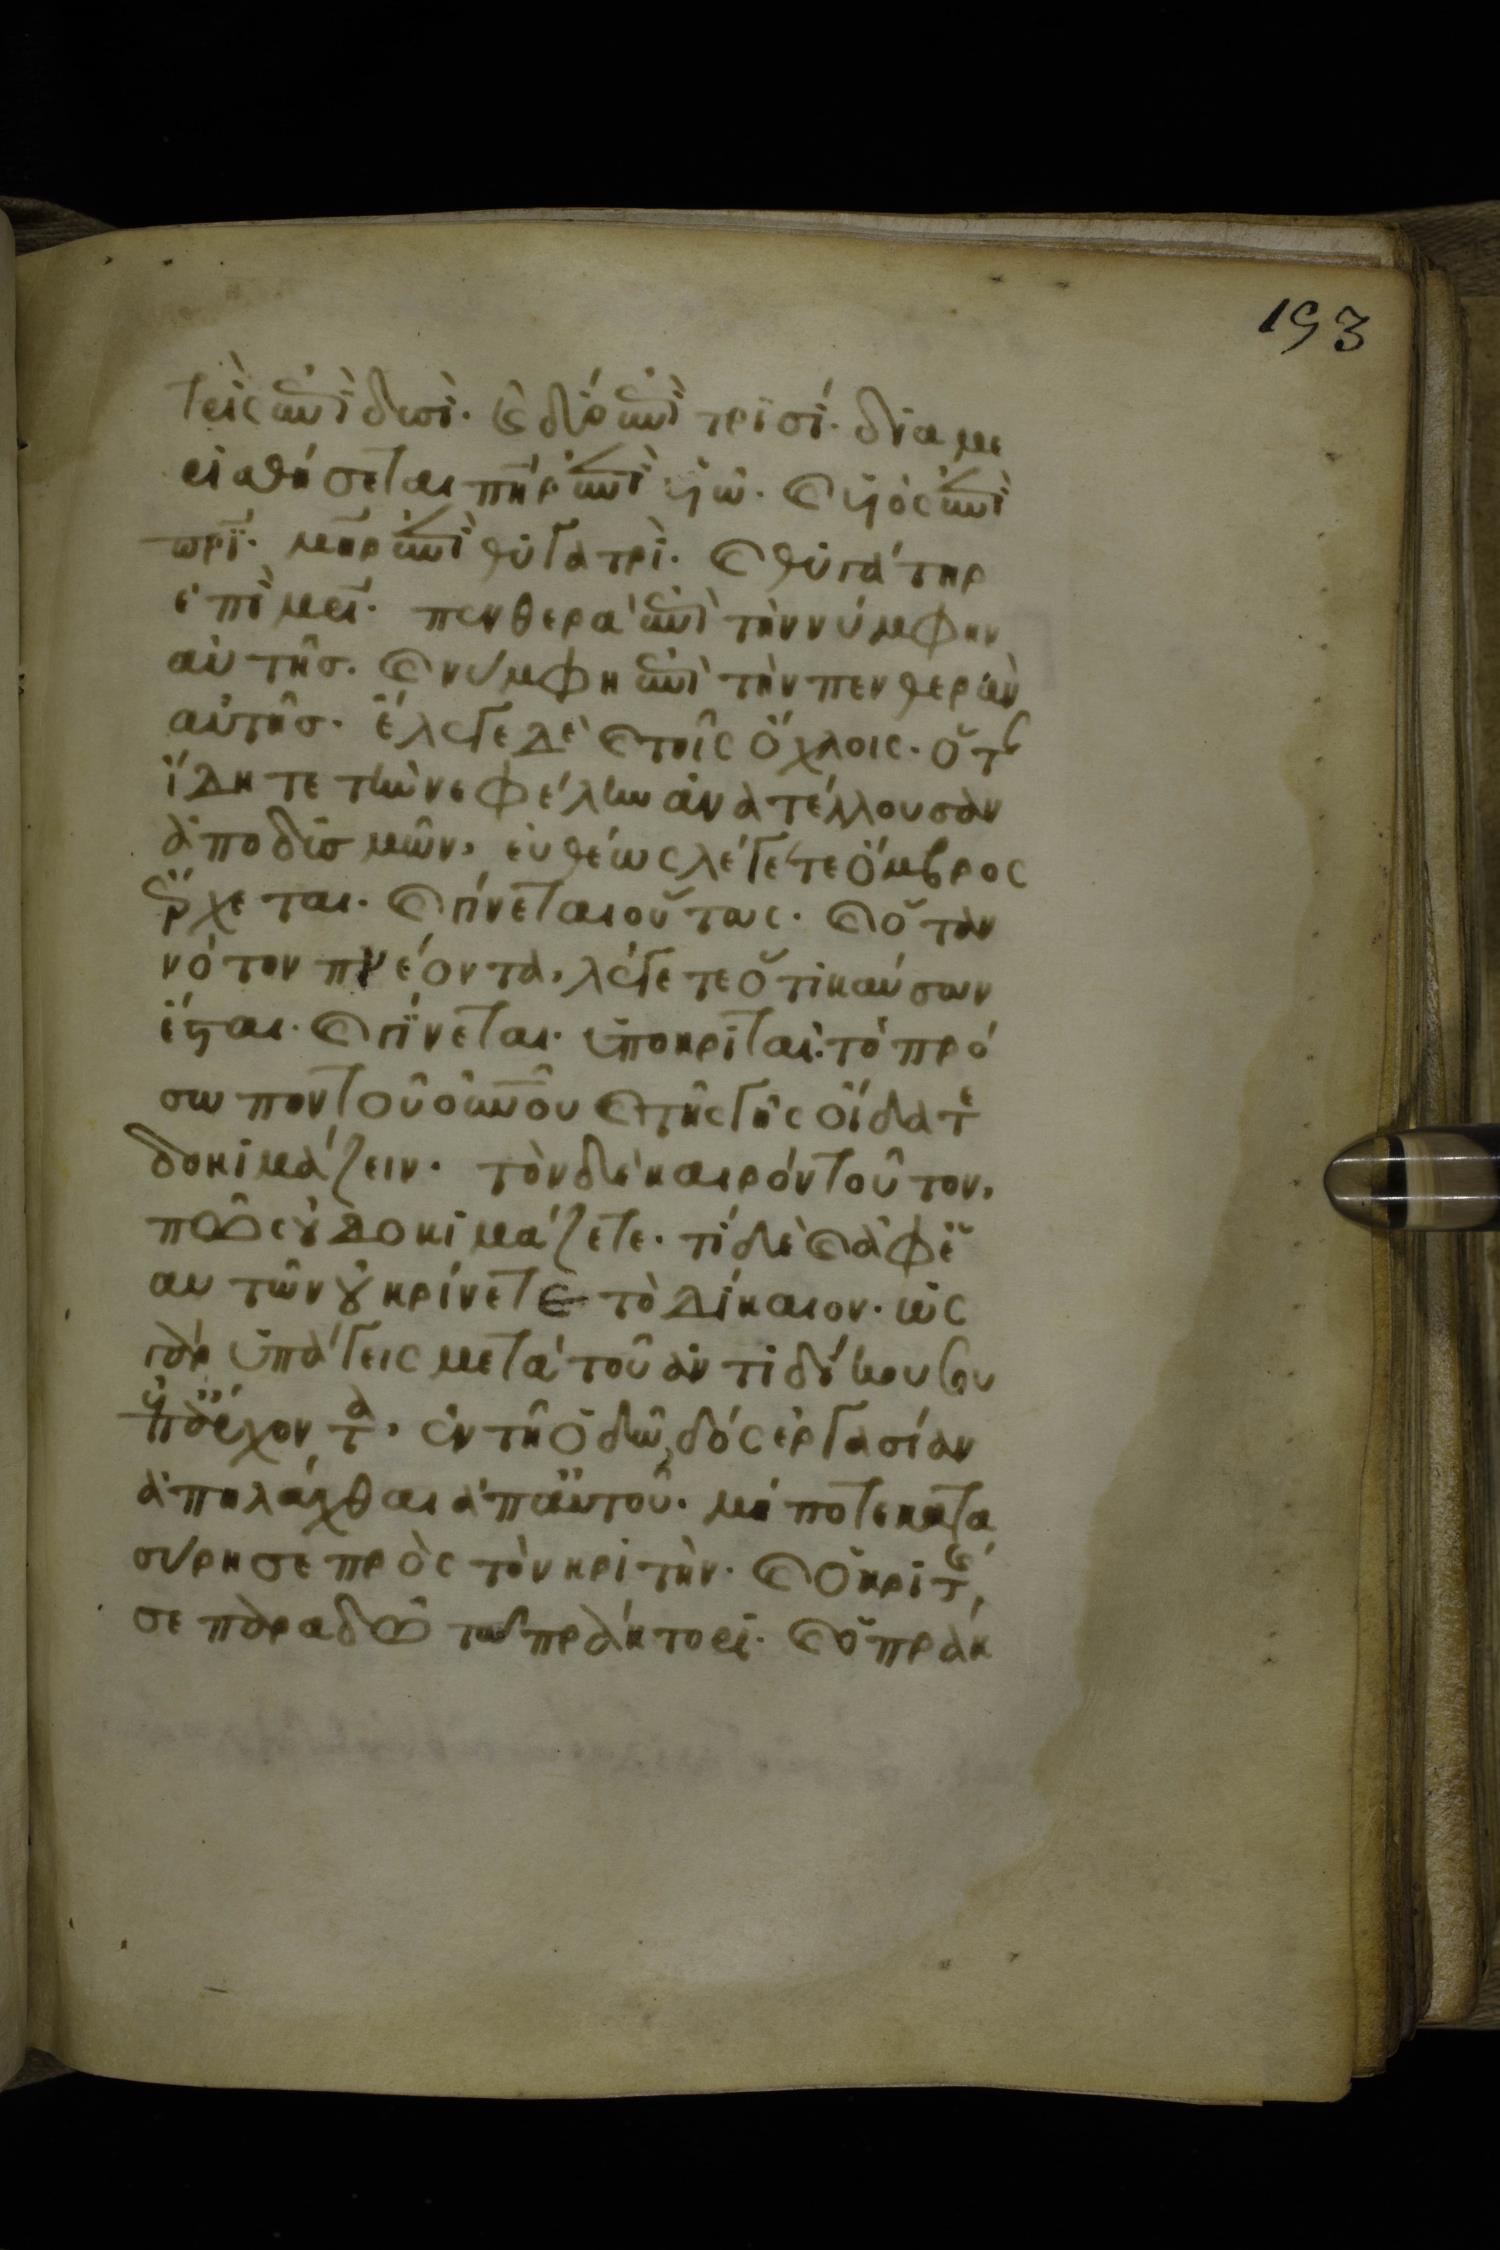 193
τρεῖς ἐπὶ δυσὶ. καὶ δύο ἐπὶ τρισί. διαμε
ρισθήσεται πηρ ἐπὶ υἱῶ. καὶ υἱὸς ἐπὶ
πρι. μηρ ἐπὶ θυγατρὶ. καὶ θυγάτηρ
ἐπὶ μρι. πενθερὰ ἐπὶ τὴν νύμφην
αὐτῆς. καὶ νύμφη ἐπὶ τὴν πενθερὰν
αὐτῆς. ἔλεγε δὲ καὶ τοῖς ὄχλοις. ὅτ
ἴδητε τὴν νεφέλην ἀνατέλλουσαν
ἀπο δυσμῶν, εὐθέως λέγετε ὄμβρος
ἔρχεται. καὶ γίνεται οὕτως. καὶ ὅταν
νότον πνέοντα, λέγετε ὅτι καύσων
ἔσται. καὶ γίνεται. ὑποκριταὶ. τὸ πρό
σωπον τοῦ οὐνοῦ καὶ τῆς γῆς οἴδατε
δοκιμάζειν. τὸν δὲ καιρόν τοῦτον,
πῶς οὐ δοκιμάζετε. τί δὲ καὶ ἀφ ἑ
αυτῶν οὐ κρίνετε τὸ δίκαιον. ὡς
γὰρ ὑπάγεις μετὰ τοῦ ἀντιδίκου σου
ἐπ ἄρχοντα, ἐν τῆ ὁδῶ, δός ἐργασίαν
ἀπηλάχθαι ἀπ αὐτοῦ. μήποτε κατα
σύρη σε πρὸς τὸν κριτὴν. καὶ ὁ κριτής
σε παραδῶ τῶ πράκτορι. καὶ ὁ πράκ